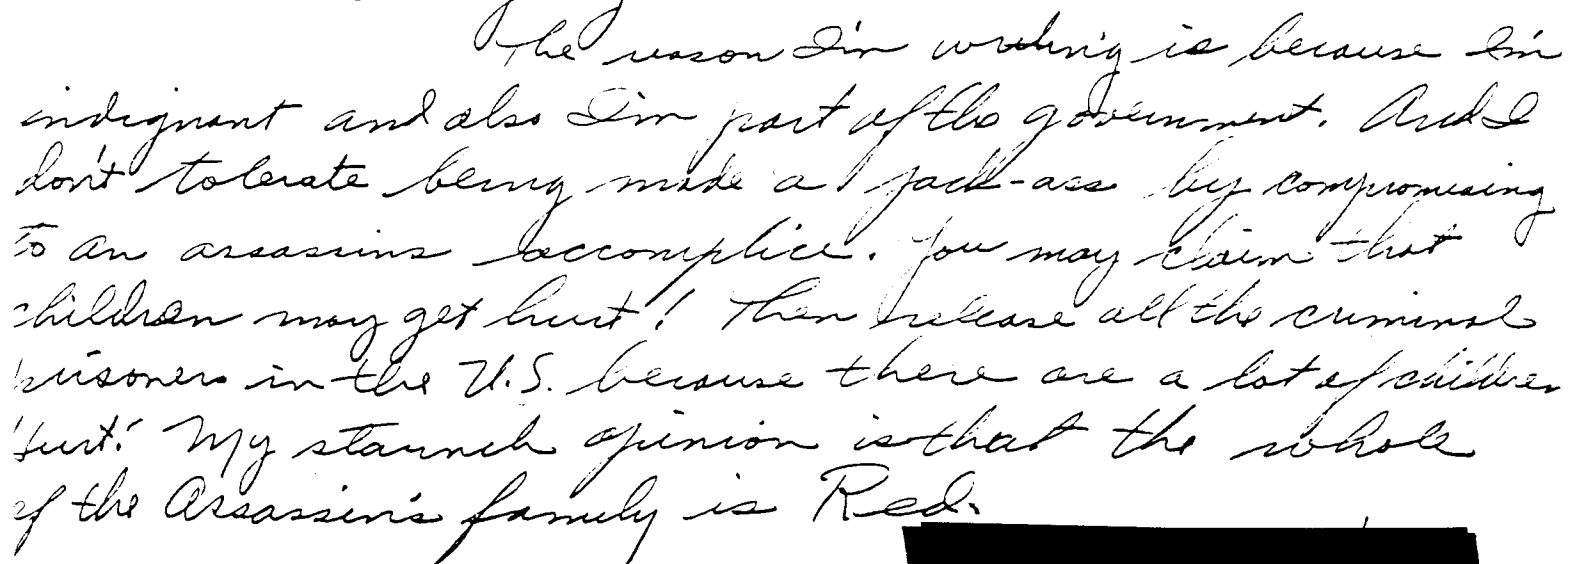 The reason I'm writing is because I'm
indignant and also I'm part of the government. And I
don't tolerate being made a jack-ass by compromising
to an assassins accomplice. You may claim that
children may get hurt! Then release all the criminal
prisoners in the U.S. because there are a lot of children
hurt! My staunch opinion is that the whole
of the Assassin's family is Red.